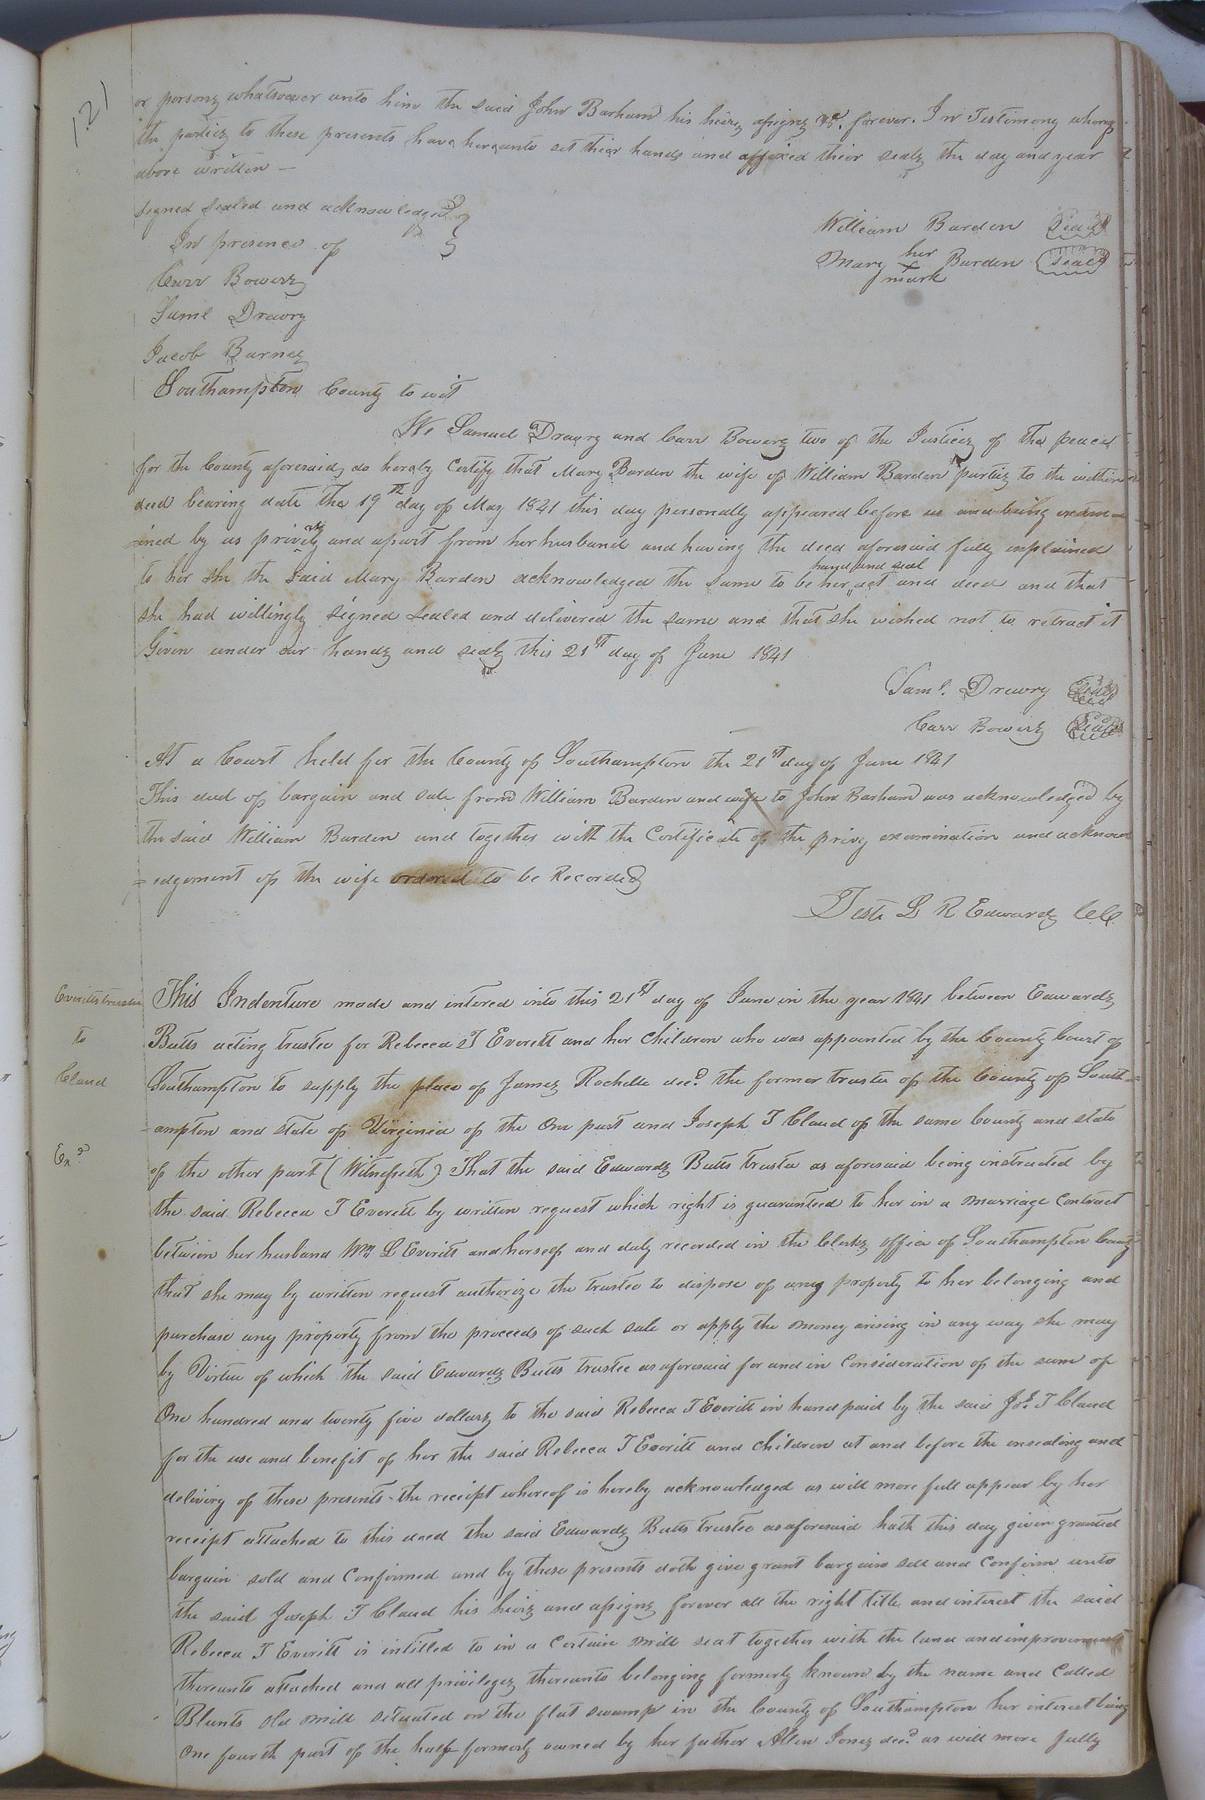 121
or persons whatsoever unto him the said John Barham his heirs assigns &c. forever. In Testimony whereof
the parties to these presents have hereunto set their hands and affixed their seals the day and year
above written —
Signed Sealed and acknowledged
In presence of
Carr Bowers
Saml Drewry
Jacob Barnes
William Barden Seal
her
Mary X Barden Seal
mark
Southampton County to wit
We Samuel Drewry and Carr Bowers two of the Justices of the peace
for the County aforesaid, do hereby Certify that Mary Barden the wife of William Barden parties to the within
deed bearing date the 19th day of May 1841 this day personally appeared before us and being exam-
-ined by us privily and apart from her husband and having the deed aforesaid fully explained
hand and seal
to her she the said Mary Barden acknowledged the same to be her act and deed and that
she had willingly signed sealed and delivered the same and that she wished not to retract it
Given under our hands and seals this 21st day of June 1841
Saml. Drewry Seal
Carr Bowers Seal
At a Court held for the County of Southampton the 21st day of June 1841
This deed of bargain and sale from William Barden and wife to John Barham was acknowledged by
the said William Barden and together with the Certificate of the privy examination and acknowl
=edgement of the wife ordered to be Recorded
Teste L R Edwards CC
Everitts trustee
to
Claud
Exd
This Indenture made and intered into this 21st day of June in the year 1841 between Edwards
Butts acting trustee for Rebecca T Everett and her Children who was appointed by the County Court of
Southampton to supply the place of James Rochelle decd. the former trustee of the County of South=
-ampton and state of Virginia of the One part and Joseph T Claud of the same County and state
of the other part (Witnesseth) That the said Edwards Butts trustee as aforesaid being instructed by
the said Rebecca T Everett by written request which right is guaranteed to her in a marriage Contract
between her husband Wm L Everitt and herself and duly recorded in the Clerks office of Southampton County
that she may by written request authorize the trustee to dispose of any property to her belonging and
purchase any property from the proceeds of such sale or apply the money arising in any way she may
by Virtue of which the said Edwards Butts trustee as aforesaid for and in Consideration of the sum of
One hundred and twenty five dollars to the said Rebecca T Everitt in hand paid by the said Jos. T Claud
for the use and benefit of her the said Rebecca T Everitt and Children at and before the ensealing and
delivery of these presents the receipt whereof is hereby acknowledged as will more full appear by her
receipt attached to this deed the said Edwards Butts trustee as aforesaid hath this day given granted
bargain sold and Confirmed and by these presents doth give grant bargain sell and Confirm unto
the said Joseph T Claud his heirs and assigns forever all the right title and interest the said
Rebecca T Everitt is intitled to in a Certain mill seat together with the land and improvements
thereunto attached and all privileges thereunto belonging formerly known by the name and Called
Blunts old mill situated on the flat swamp in the County of Southampton her interest being
One fourth part of the half formerly owned by her father Allen Jones decd. as will more fully